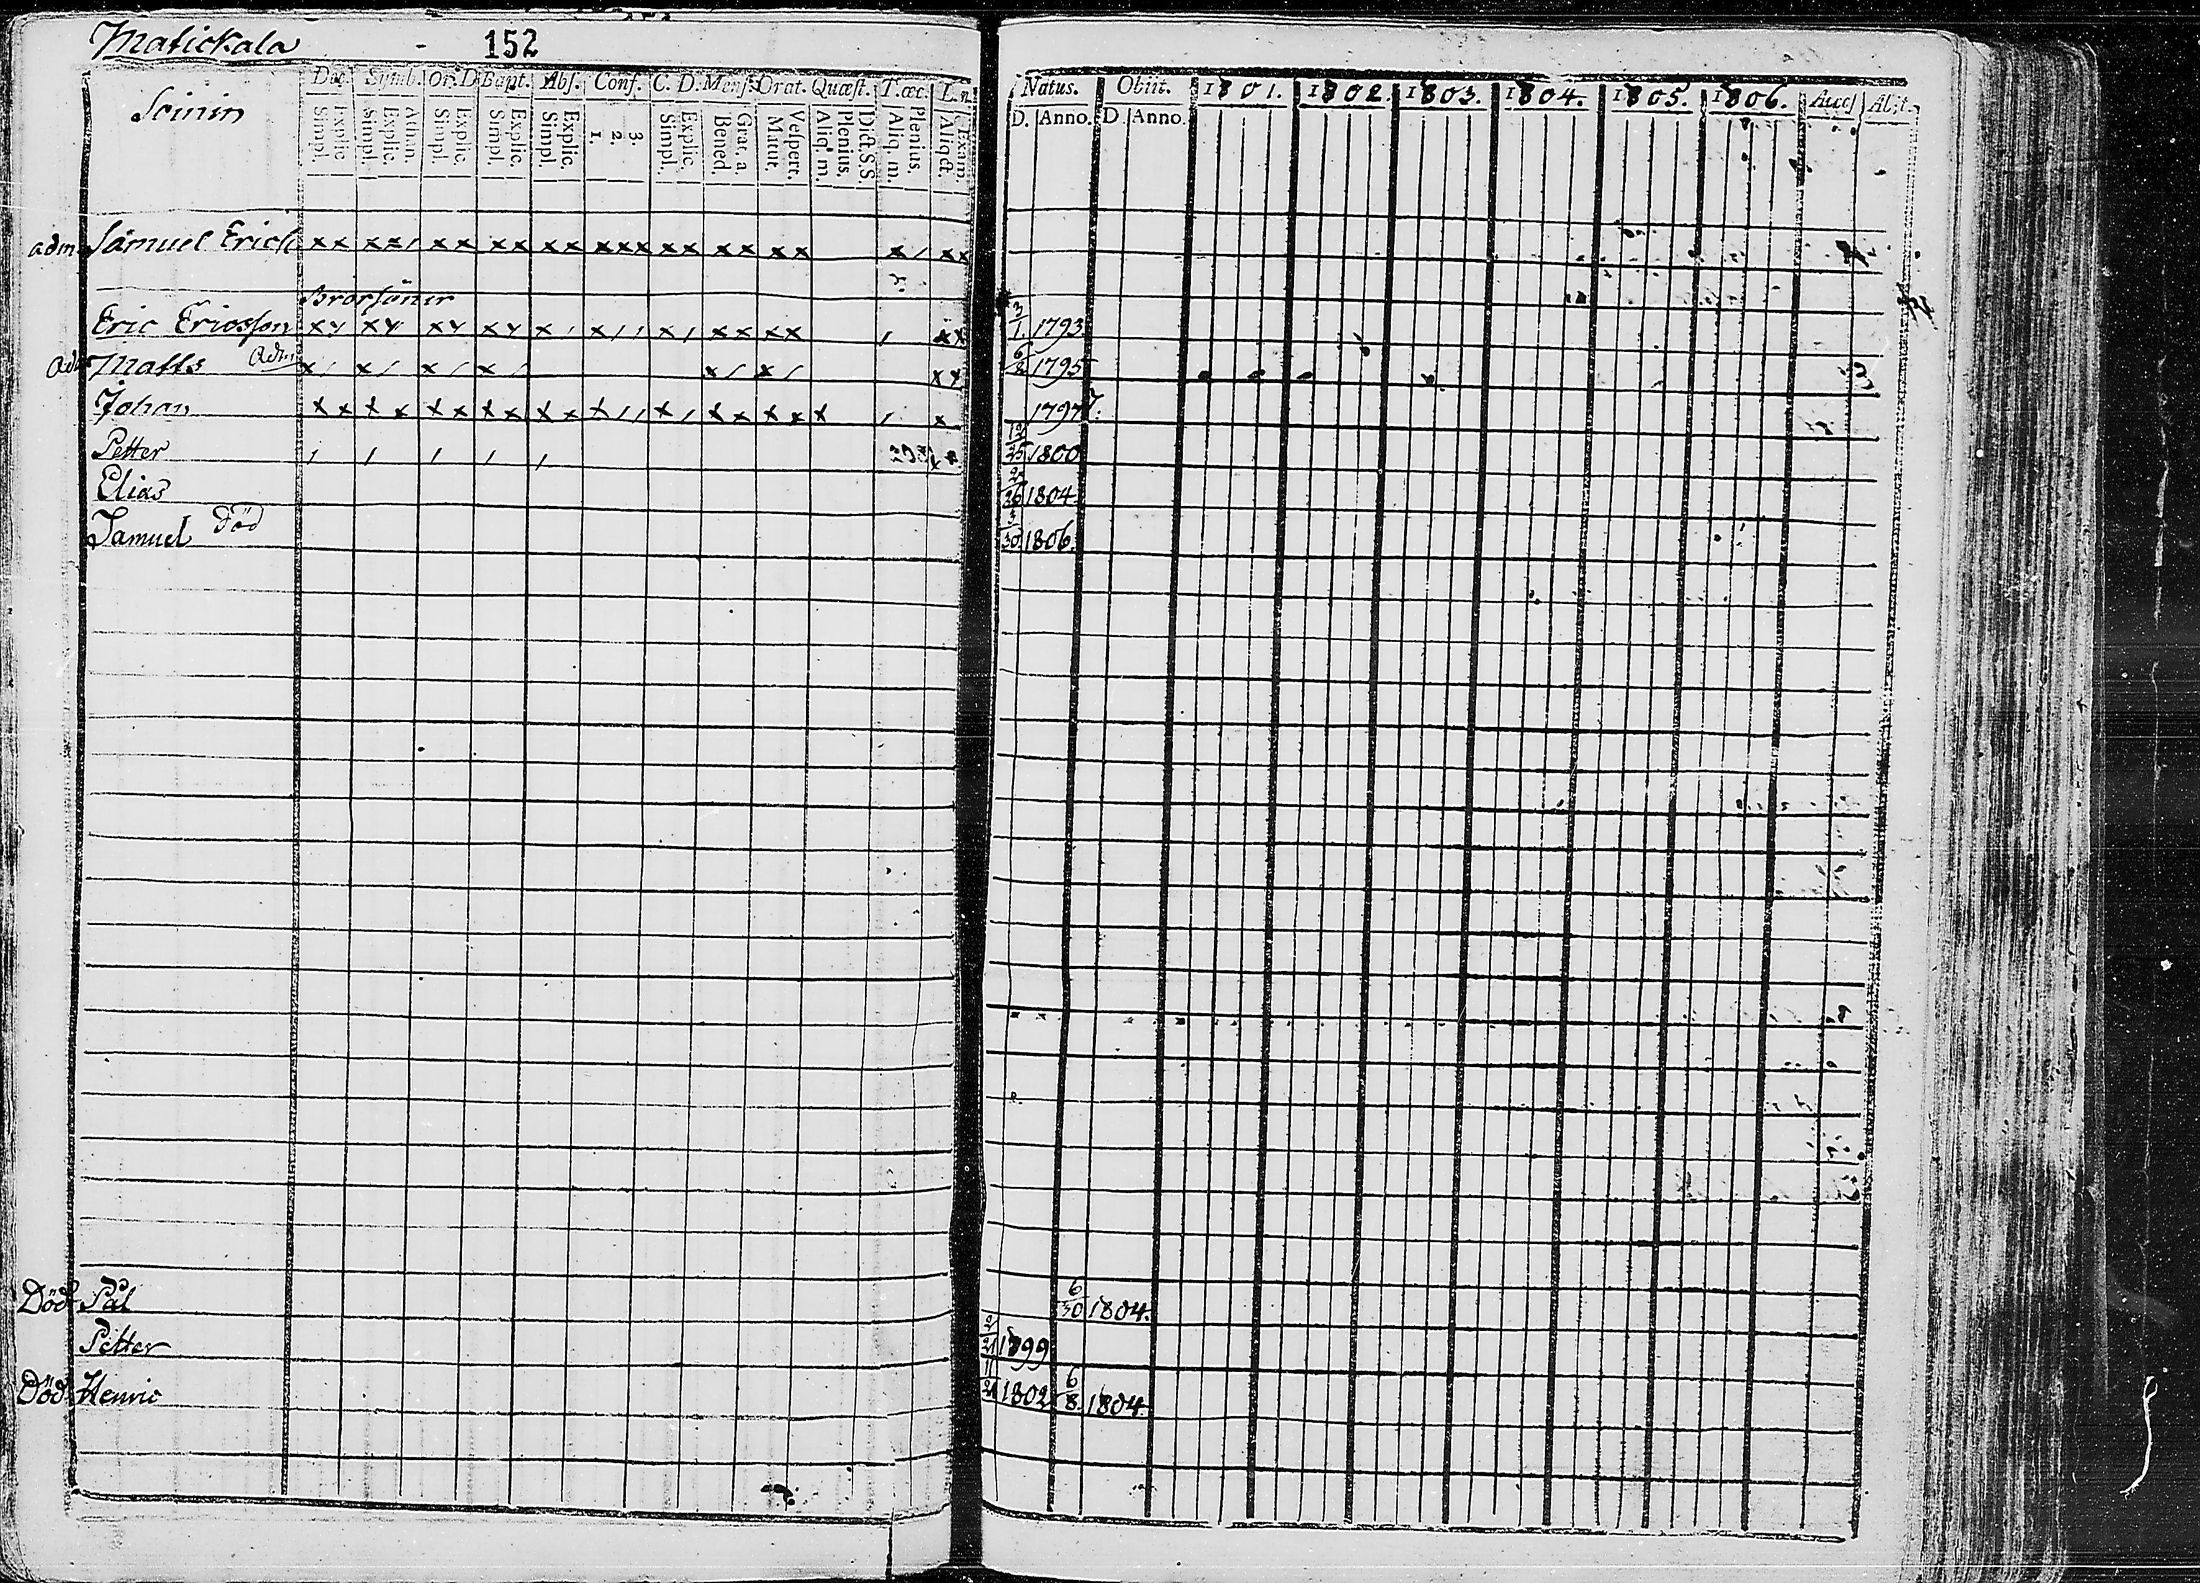 Matickala - 152
Dec. Symb. Or. D. Bapt. Abſ. Conf. C. D. Menſ. Orat. Quæſt. T. œc. L. n.
Simpl. Explic. Simpl. Explic. Athan. Simpl. Explic. Simpl. Explic. Simpl. Explic. 1. 2. 3. Simpl. Explic. Bened. Grat. a. Matut. Veſpert. Aliq. m. Plenius. Dict. S. S. Aliq. m. Plenius. Aliqd. Exam.
Natus. Obiit. 1801. 1802. 1803. 1804. 1805. 1806. Acceſ Abit.
D. Anno. D. Anno.
Scinin
adm Samuel Erics x x x x / x x x x x x x x x x x x x x x x x / x x
Brorsöner
Eric Ericsson x x x x x x x x x / x / / x / x x x x / x x 3/1. 1793
Adm Matts Adm x / x / x / x / x / x / x x 6/8 1795
Johan x x x x x x x x x x x / / x / x x x x x / x 1797.
Petter / / / / / 12/25 1800
Elias 2/26 1804
Samuel Död 3/30 1806.
Död Pål 6/30 1804.
Petter 2/21 1799
Död Henric 11/21 1802 6/8. 1804.